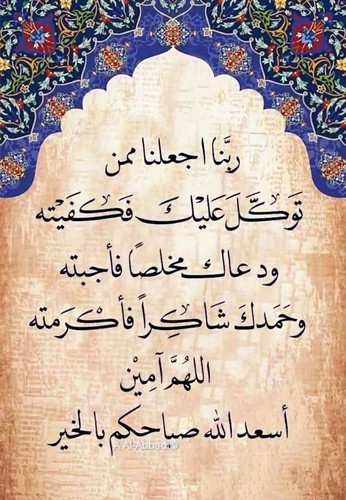 ربَّنا اجعلنا ممن
تَوكَّلَ عَليْكَ فَكفَيْته
ودعاك مخلصًا فأجبته
وحَمدكَ شَاكِراً فأكْرَمته
اللهُمَّ آمِيْن
أسعد الله صباحكم بالخير
A Al-Abbadi